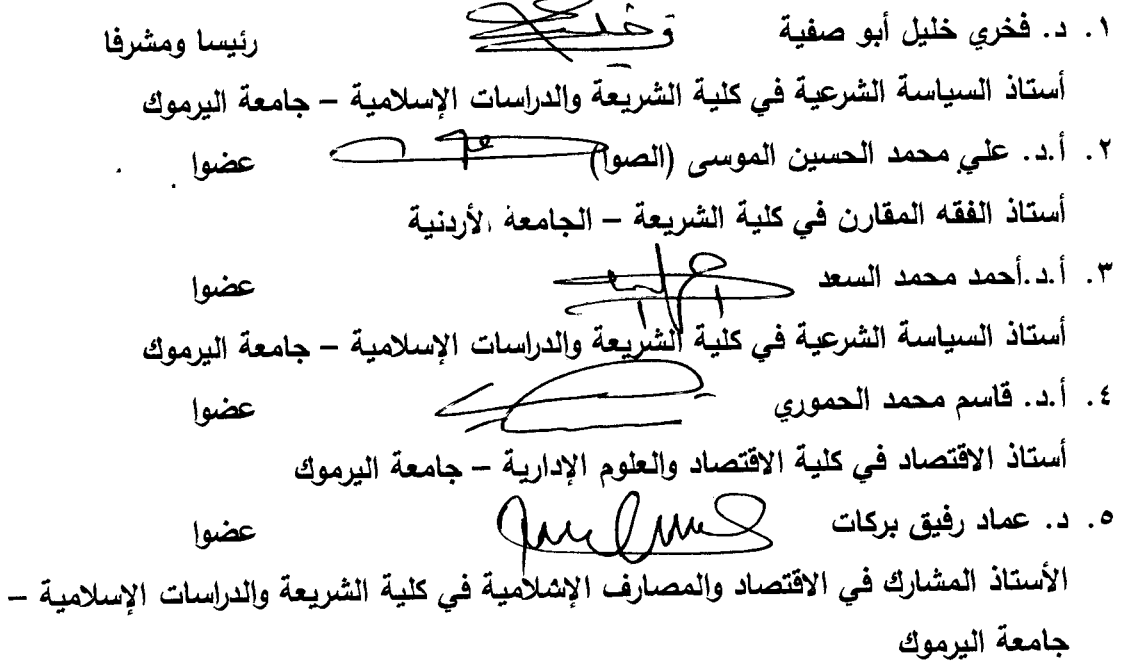 ١. د. فخري خليل أبو صفية رئيسا ومشرفا
أستاذ السياسة الشرعية في كلية الشريعة والدراسات الإسلامية – جامعة اليرموك
٢. أ.د. علي محمد الحسين الموسى (الصوا) عضوا
أستاذ الفقه المقارن في كلية الشريعة – الجامعة الأردنية
٣. أ.د.أحمد محمد السعد عضوا
أستاذ السياسة الشرعية في كلية الشريعة والدراسات الإسلامية – جامعة اليرموك
٤. أ.د. قاسم محمد الحموري عضوا
أستاذ الاقتصاد في كلية الاقتصاد والعلوم الإدارية – جامعة اليرموك
٥. د. عماد رفيق بركات عضوا
الأستاذ المشارك في الاقتصاد والمصارف الإسلامية في كلية الشريعة والدراسات الإسلامية –
جامعة اليرموك